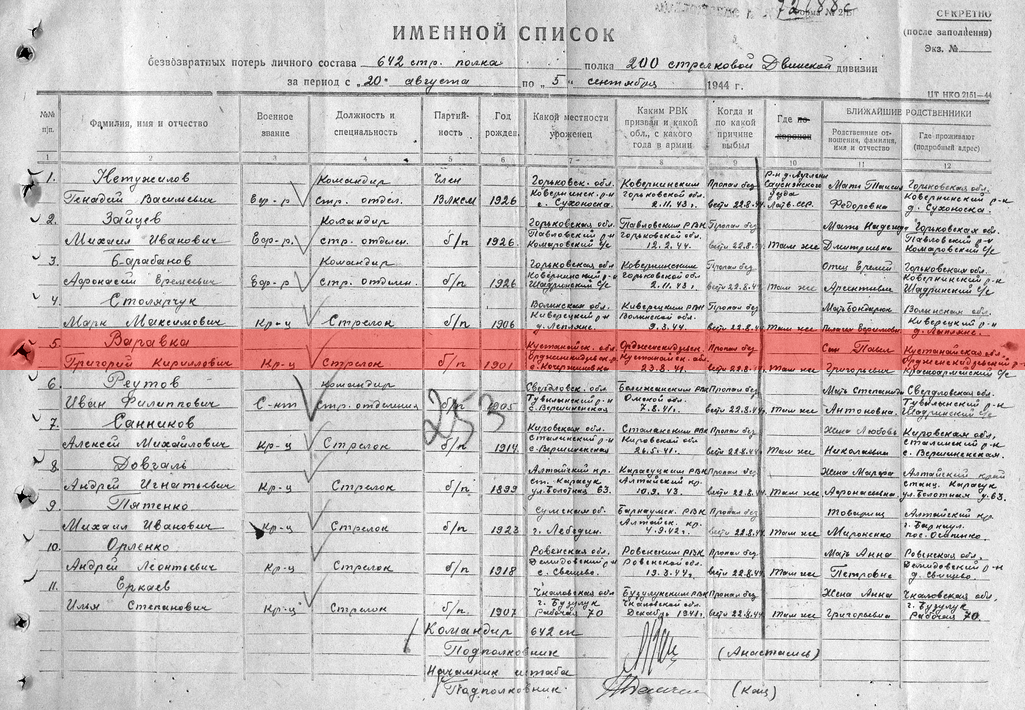 СЕКРЕТНО
(после заполнения)
Экз. №
ИМЕННОЙ СПИСОК
безвозвратных потерь личного состава 642 стр. полка полка 200 стрелковой Двинской дивизии
за период с „20" августа по „5" сентября 1944 г.
ЦТ НКО 2151—44
№№ п/п. Фамилия, имя и отчество Военное звание Должность и специальность Партийность Год рожден. Какой местности уроженец Каким РВК призван и какой обл., с какого года в армии Когда и по какой причине выбыл Где похоронен БЛИЖАЙШИЕ РОДСТВЕННИКИ
Родственные отношения, фамилия, имя и отчество Где проживают (подробный адрес)
1 2 3 4 5 6 7 8 9 10 11 12
1. Нетужилов Командир Член Горьковск. обл. Ковернинским Пропал без Мать Горьковская обл.
Генадий Васильевич Стр. отдел. ВЛКСМ 1926 Ковернинск. р-н с. Сухоноска 2.11.43 г. вести 22.8.44 Латв. ССР. Федоровна Ковернинский р-н д. Сухоноска
2. Зайцев Командир Горьковская обл. Павловским РВК Пропал без Мать Горьковская обл.
Михаил Иванович стр. отделен. б/п 1926 Павловский р-н Комаровский с/с Горьковской обл. 12.2.44. вести 22.8.44 Там же Дмитриевна Павловский р-н Комаровский с/с
3. Барабанов Командир Горьковская обл. Ковернинским Пропал без Отец Горьковская обл.
Афонасий Еремеевич стр. отделен. б/п 1926 Ковернинский р-н Шадринский с/с Горьковской обл. 2.11.43 г. вести 22.8.44 Там же Ковернинский р-н Шадринский с/с
4. Столярчук Волынская обл. Киверецким РВК Пропал без Мать Бондарюк Волынская обл.
Марк Максимович Кр-ц Стрелок б/п 1906 Киверецкий р-н Волынской обл. 9.3.44. вести 22.8.44 Там же Киверецкий р-н
5. Варавка Кустанайск. обл. Пропал без Сын Павел Кустанайская обл.
Григорий Кириллович Кр-ц Стрелок б/п 1901 Кустанайск. обл. 23.8.41 вести 22.8.44 Там же Григорьевич Красноармейский с/с
6. Реутов командир Свердловск. обл. Пропал без Мать Степанида Свердловская обл.
Иван Филиппович С-нт стр. отделения б/п 1905 Омской обл. 7.8.41 г. вести 22.8.44 Там же Антоновна
253
7. Санников Кировская обл. Пропал без Жена Любовь Кировская обл.
Алексей Михайлович Кр-ц Стрелок б/п 1914 Сталинский р-н с. Вершиненская Кировской обл. вести 22.8.44 Там же Николаевна Сталинский р-н с. Вершиненская
8. Довгаль Алтайский кр. Карасукским РВК Пропал без Жена Марфа Алтайский край
Андрей Игнатьевич Кр-ц Стрелок б/п 1899 ст. Карасук ул. Болотная 63. Алтайский кр. 10.9.43. вести 22.8.44 Там же Афонасьевна станц. Карасук ул. Болотная д. 63.
9. Пятенко Сумская обл. Барнаульск. РВК Пропал без Товарищ Алтайский кр.
Михаил Иванович Кр-ц Стрелок б/п 1923 г. Лебедин. Алтайск. кр. 4.9.42 г. вести 22.8.44 Там же Мироненко г. Барнаул.
10. Орленко Ровенская обл. Ровенским РВК Пропал без Мать Анна Ровенская обл.
Андрей Леонтьевич Кр-ц Стрелок б/п 1918 Демидовский р-н Ровенской обл. 19.3.44 г. вести 22.8.44 Там же Петровна Демидовский р-н
11. Еркаев Чкаловская обл. Бузулукским РВК Пропал без Жена Анна Чкаловская обл.
Илья Степанович Кр-ц Стрелок б/п 1907 г. Бузулук Рабочая 70 Чкаловской обл. Декабрь 1941 г. вести 22.8.44 Там же Григорьевна г. Бузулук Рабочая 70.
Командир 642 сп
Подполковник (Анастасьев)
Начальник штаба
Подполковник (Кац)